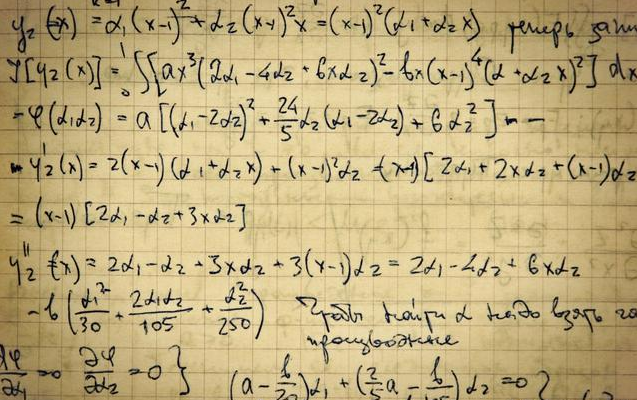 y₂(x) = α₁(x-1)² + α₂(x-1)²x = (x-1)²(α₁+α₂x) теперь
J[y₂(x)] = ₀∫¹[ax³(2α₁-4α₂+6xα₂)² - bx(x-1)⁴(α+α₂x)²] dx
-φ(α₁α₂) = a[(α₁-2α₂)² + 24/5 α₂(α₁-2α₂) + 6α₂²] - -
y₂'(x) = 2(x-1)(α₁+α₂x) + (x-1)²α₂ = (x-1)[2α₁+2xα₂+(x-1)α₂
= (x-1)[2α₁-α₂+3xα₂]
y₂''(x) = 2α₁-α₂+3xα₂+3(x-1)α₂ = 2α₁-4α₂+6xα₂
-b(α₁²/30 + 2α₁α₂/105 + α₂²/250) Чтобы найти α надо взять
производные
∂φ/∂α₁ = 0 ∂φ/∂α₂ = 0 } (a - b/30)α₁ + (2/5 a - b/105)α₂ = 0 }